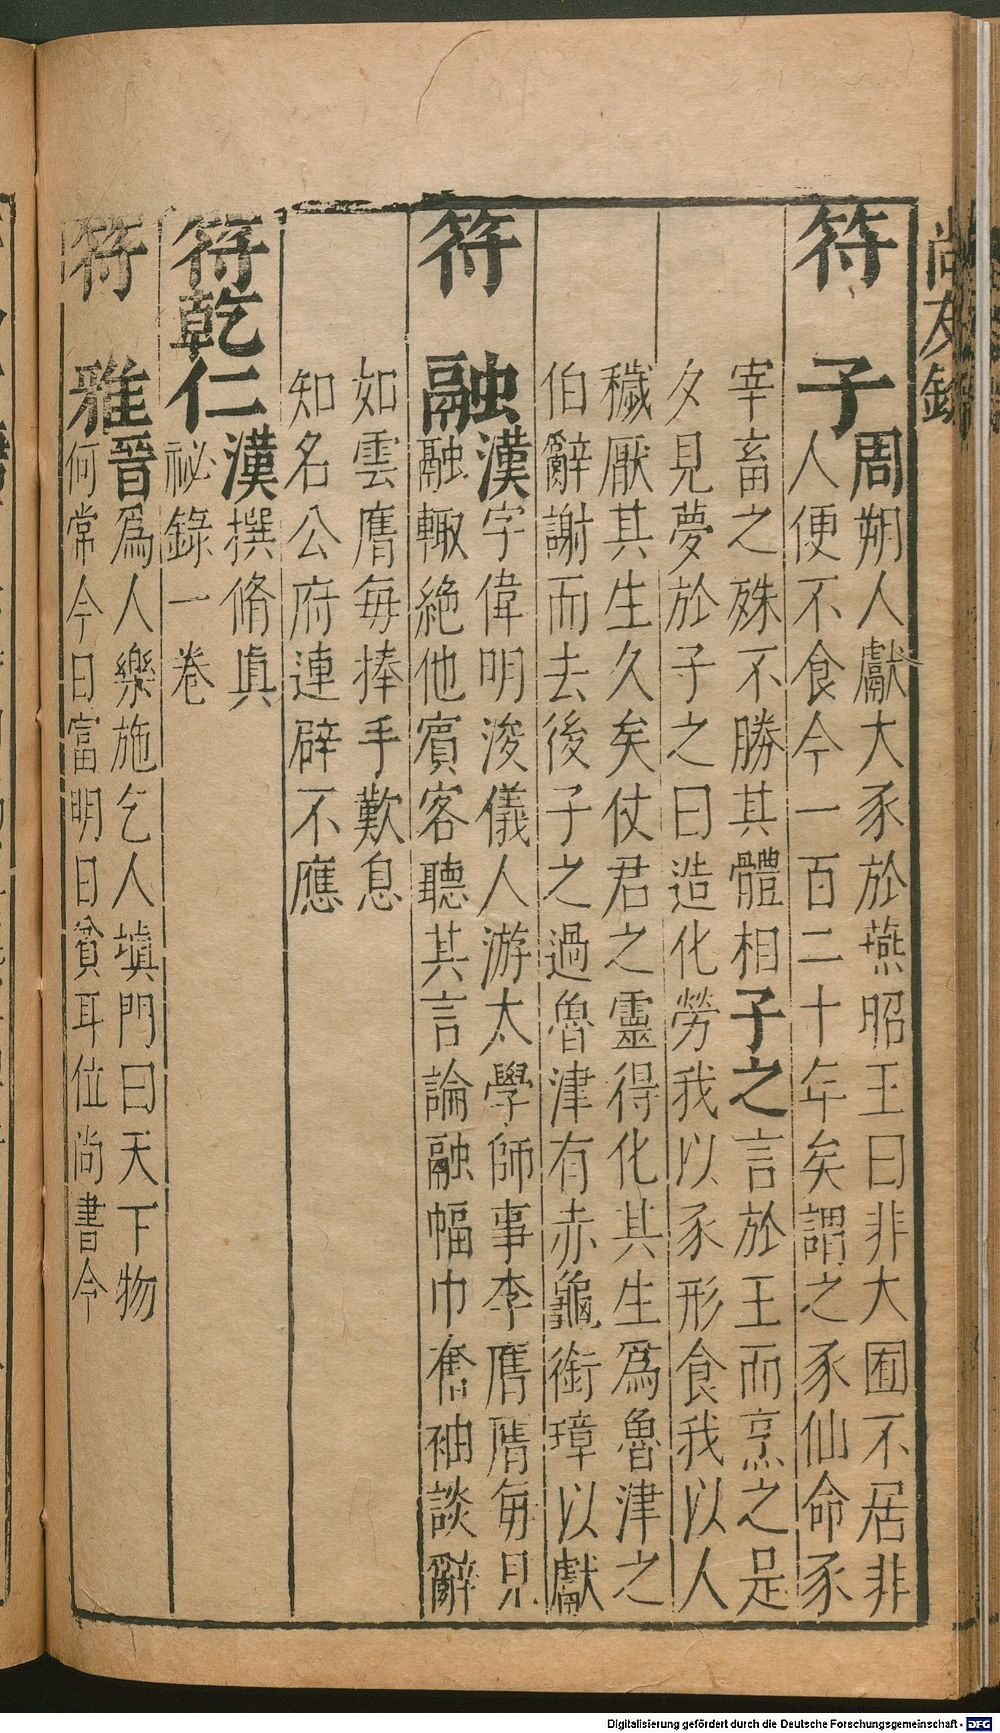 尚友錄
符子
周朔人獻大豕於燕昭王曰非大圂不居非
人便不食今一百二十年矣謂之豕仙命豕
宰畜之殊不勝其體相子之言於王而烹之是
夕見夢於子之曰造化勞我以豕形食我以人
穢厭其生久矣仗君之靈得化其生為魯津之
伯辭謝而去後子之過魯津有赤龜銜璋以獻
符融
漢字偉明浚儀人游太學師事李膺膺每見
融輙絕他賓客聽其言論融幅巾奮袖談辭
如雲膺每捧手歎息
知名公府連辟不應
符乾仁
漢撰脩真
祕錄一卷
符雅
晉爲人樂施乞人塡門曰天下物
何常今日富明日貧耳位尚書令
Digitalisierung gefördert durch die Deutsche Forschungsgemeinschaft - DFG